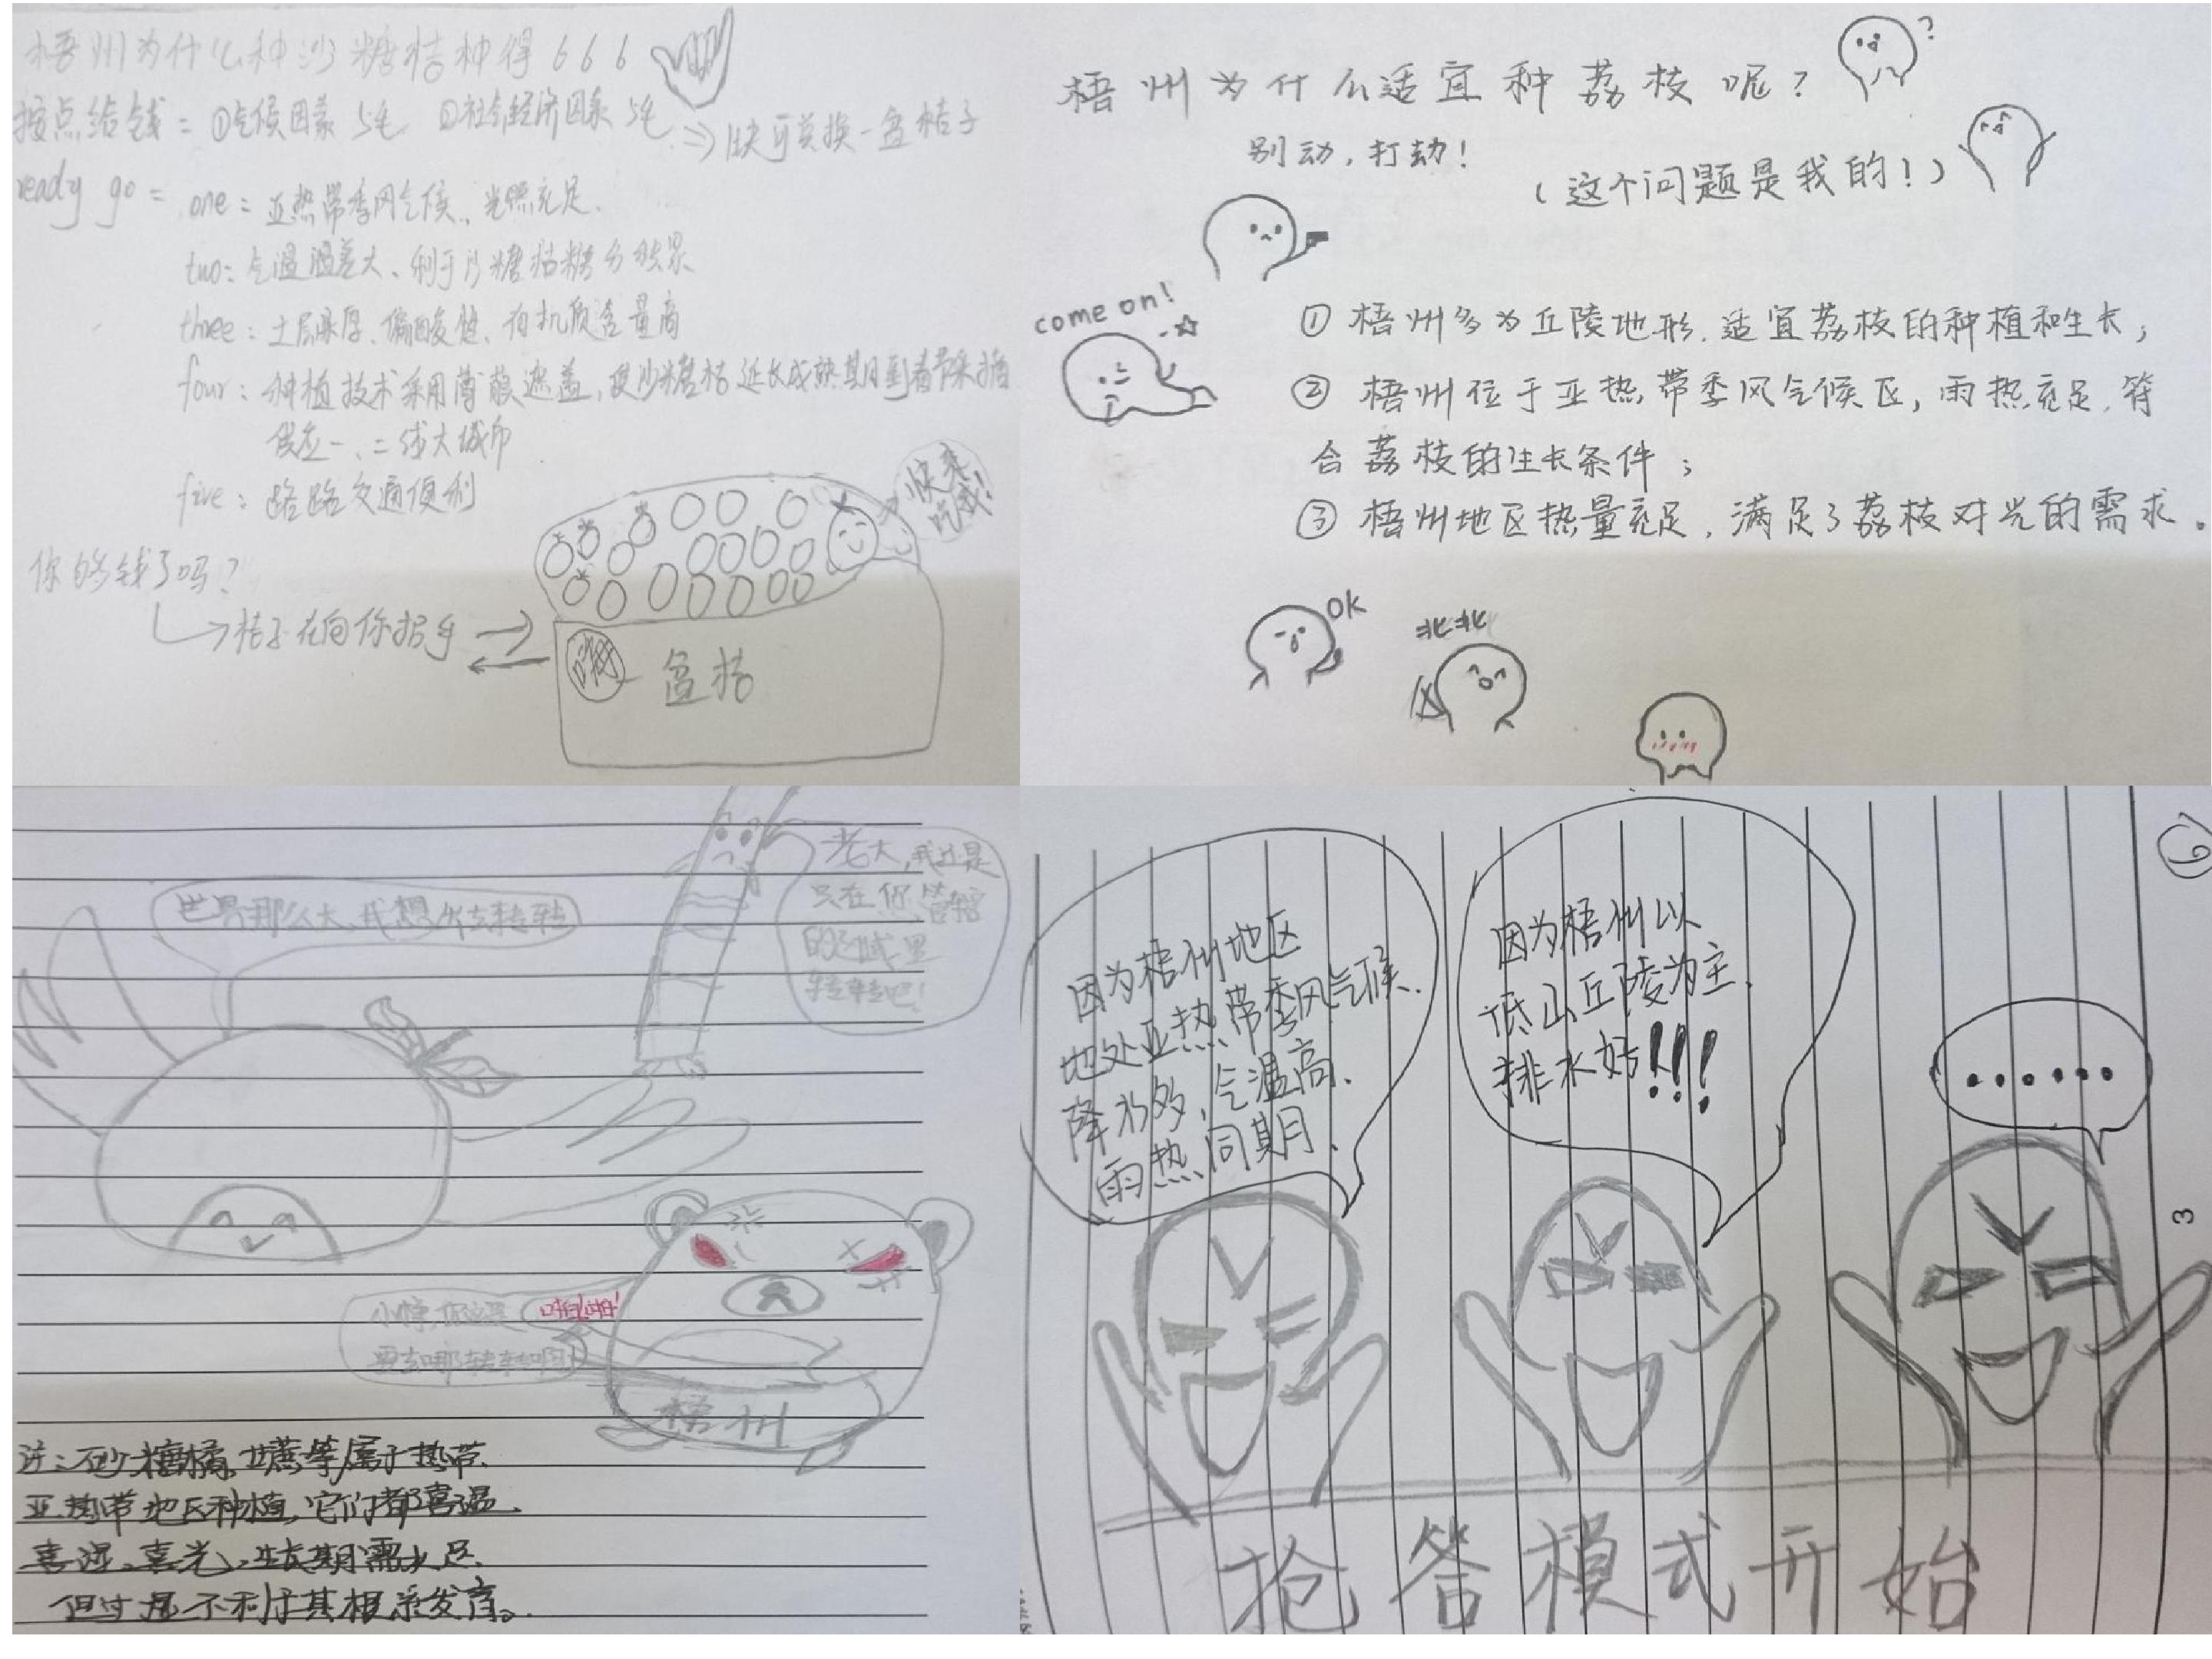 梧州为什么种沙糖桔种得666
按点给钱：①气候因素5毛 ②社会经济因素5毛 ⇒1块可兑换一盆桔子
ready go：
one：亚热带季风气候，光照充足．
two：气温温差大、利于沙糖桔糖分积累
three：土层深厚、偏酸性、有机质含量高
four：种植技术采用薄膜遮盖，使沙糖桔延长成熟期到春节采摘
供应一、二线大城市
five：路路交通便利
快来
吃我！
你的钱了吗？
桔子在向你招手
盆桔
梧州为什么适宜种荔枝呢？
?
别动，打劫！
（这个问题是我的！）
come on!
① 梧州多为丘陵地形，适宜荔枝的种植和生长；
② 梧州位于亚热带季风气候区，雨热充足，符
合荔枝的生长条件；
③ 梧州地区热量充足，满足了荔枝对光的需求。
OK
北北
世界那么大，我想出去转转
老大，我还是
只在你管辖
的区域里
转转吧！
要去哪转转啊
梧州
注：砂糖橘、甘蔗等属于热带、
亚热带地区种植，它们都喜温、
喜湿、喜光，生长期需水足、
但过湿不利于其根系发育。
因为梧州地区
地处亚热带季风气候、
降水多，气温高、
雨热同期．
因为梧州以
低山丘陵为主、
排水好！！！
……
3
抢答模式开始